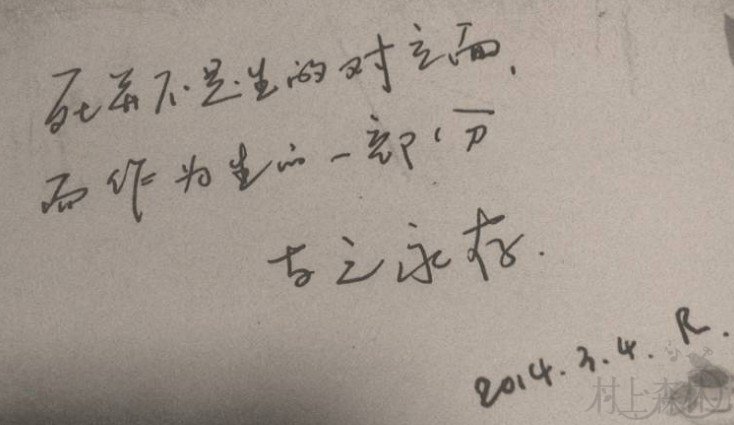 死并不是生的对立面,
而作为生的一部分
与之永存.
2014.3.4. R.
村上森林